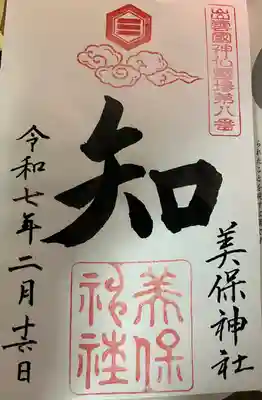 出雲國神仏霊場第八番
美保神社
知
美保神社
令和七年二月十六日